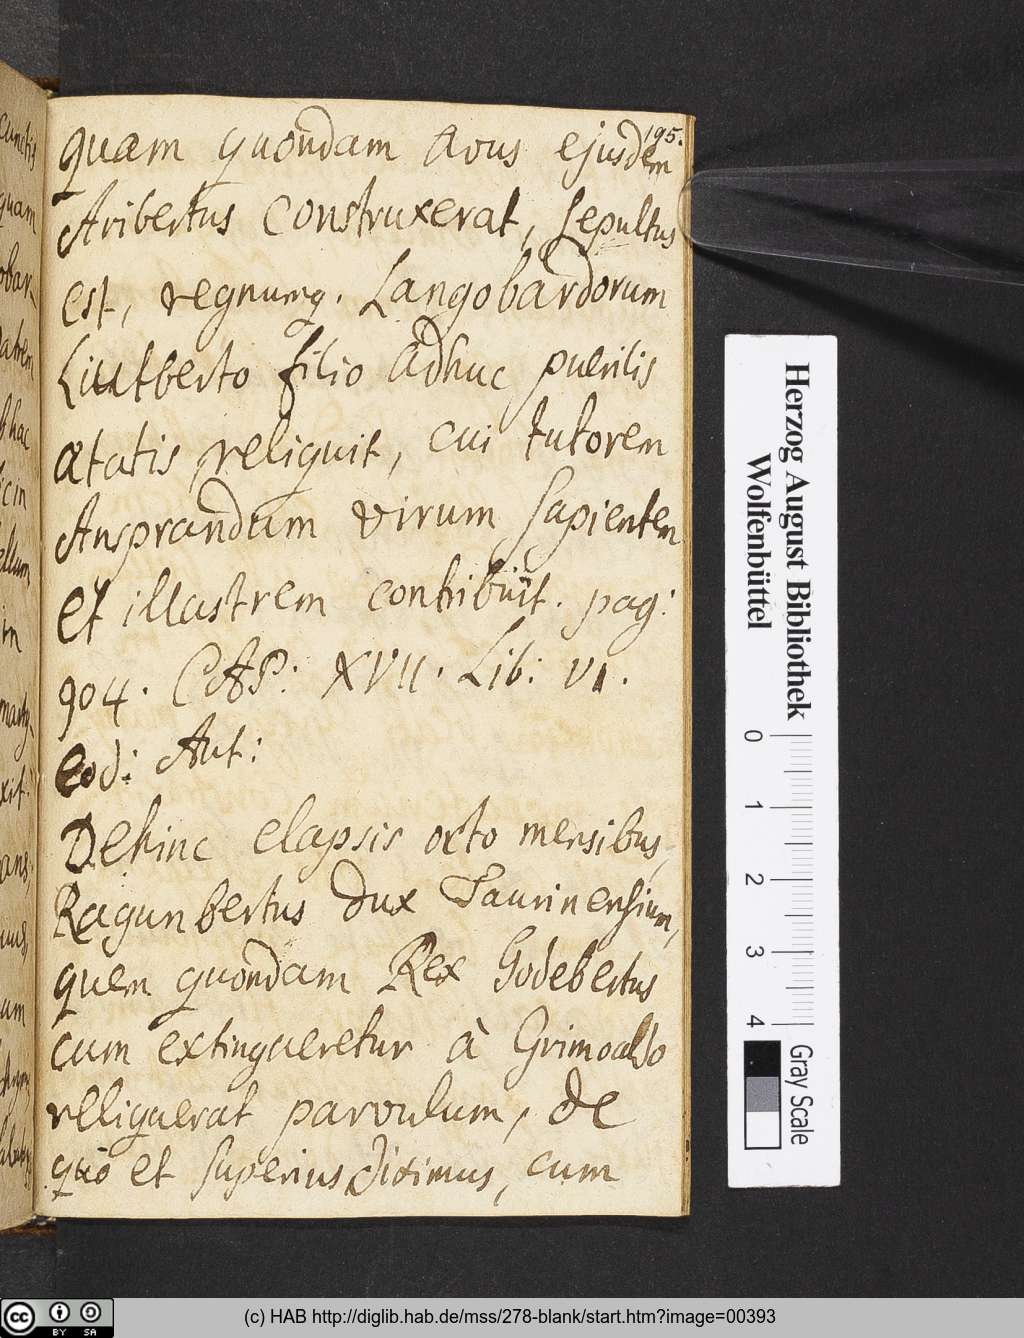 195.
quam quondam avus ejusdem
Aribertus construxerat, sepultus
est, regnumq. Langobardorum
Liutberto filio adhuc puerilis
ætatis reliquit, cui tutorem
Ansprandum virum sapientem
et illustrem contribuit. pag:
904. CAP: XVII. Lib: VI.
eod: Aut:
Dehinc elapsis octo mensibus,
Ragunbertus dux Taurinensium,
quem quondam Rex Godebertus
cum extingueretur à Grimoaldo
reliquerat parvulum, de
quo et superius diximus, cum
cunctis
quam
obar-
atrem
hac
cin
ellum
in
xit:
um
Herzog August Bibliothek
Wolfenbüttel
0 1 2 3 4
Gray Scale
cc BY SA
(c) HAB http://diglib.hab.de/mss/278-blank/start.htm?image=00393